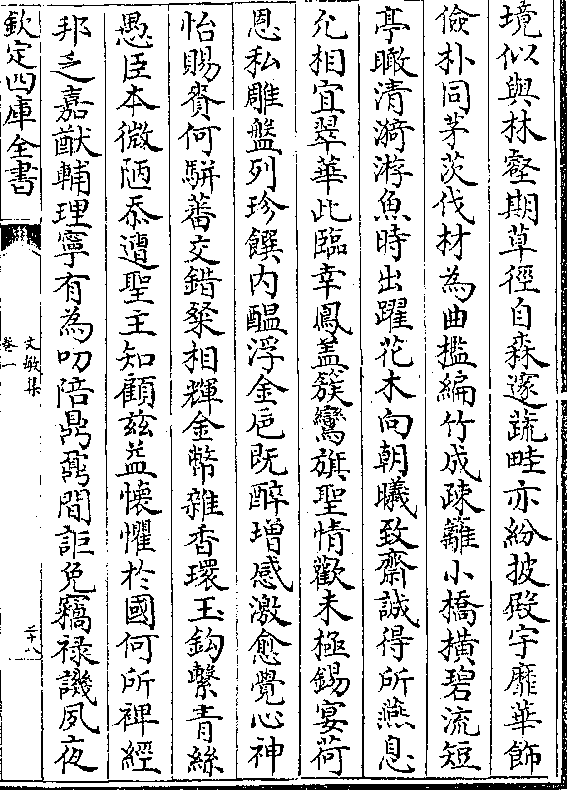 境似與林壑期草徑自森邃蔬畦亦紛披殿宇靡華飾
儉朴同茅茨伐材為曲檻編竹成疎籬小橋横碧流短
亭瞰清漪游魚時出躍花木向朝曦致齋誠得所燕息
允相宜翠華此臨幸鳳盖簇鸞旗聖情歡未極錫宴荷
恩私雕盤列珍饌内醖浮金巵既醉增感激愈覺心神
怡賜賚何駢蕃交錯粲相輝金幣雜香環玉鈎繫青絲
愚臣本微陋忝遭聖主知顧兹益懷懼於國何所裨經
邦乏嘉猷輔理寧有為叨陪鼎鼐間詎免竊禄譏夙夜
欽定四庫全書
文敏集
卷一
二十八